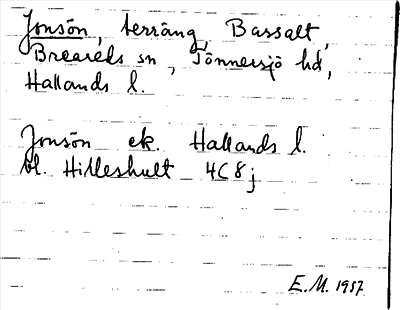 Jonsön, terräng, Bassalt,
Breareds sn, Tönnersjö hd,
Hallands l.
Jonsön ek. Hallands l.
bl. Hilleshult 4C8j
E.M. 1957